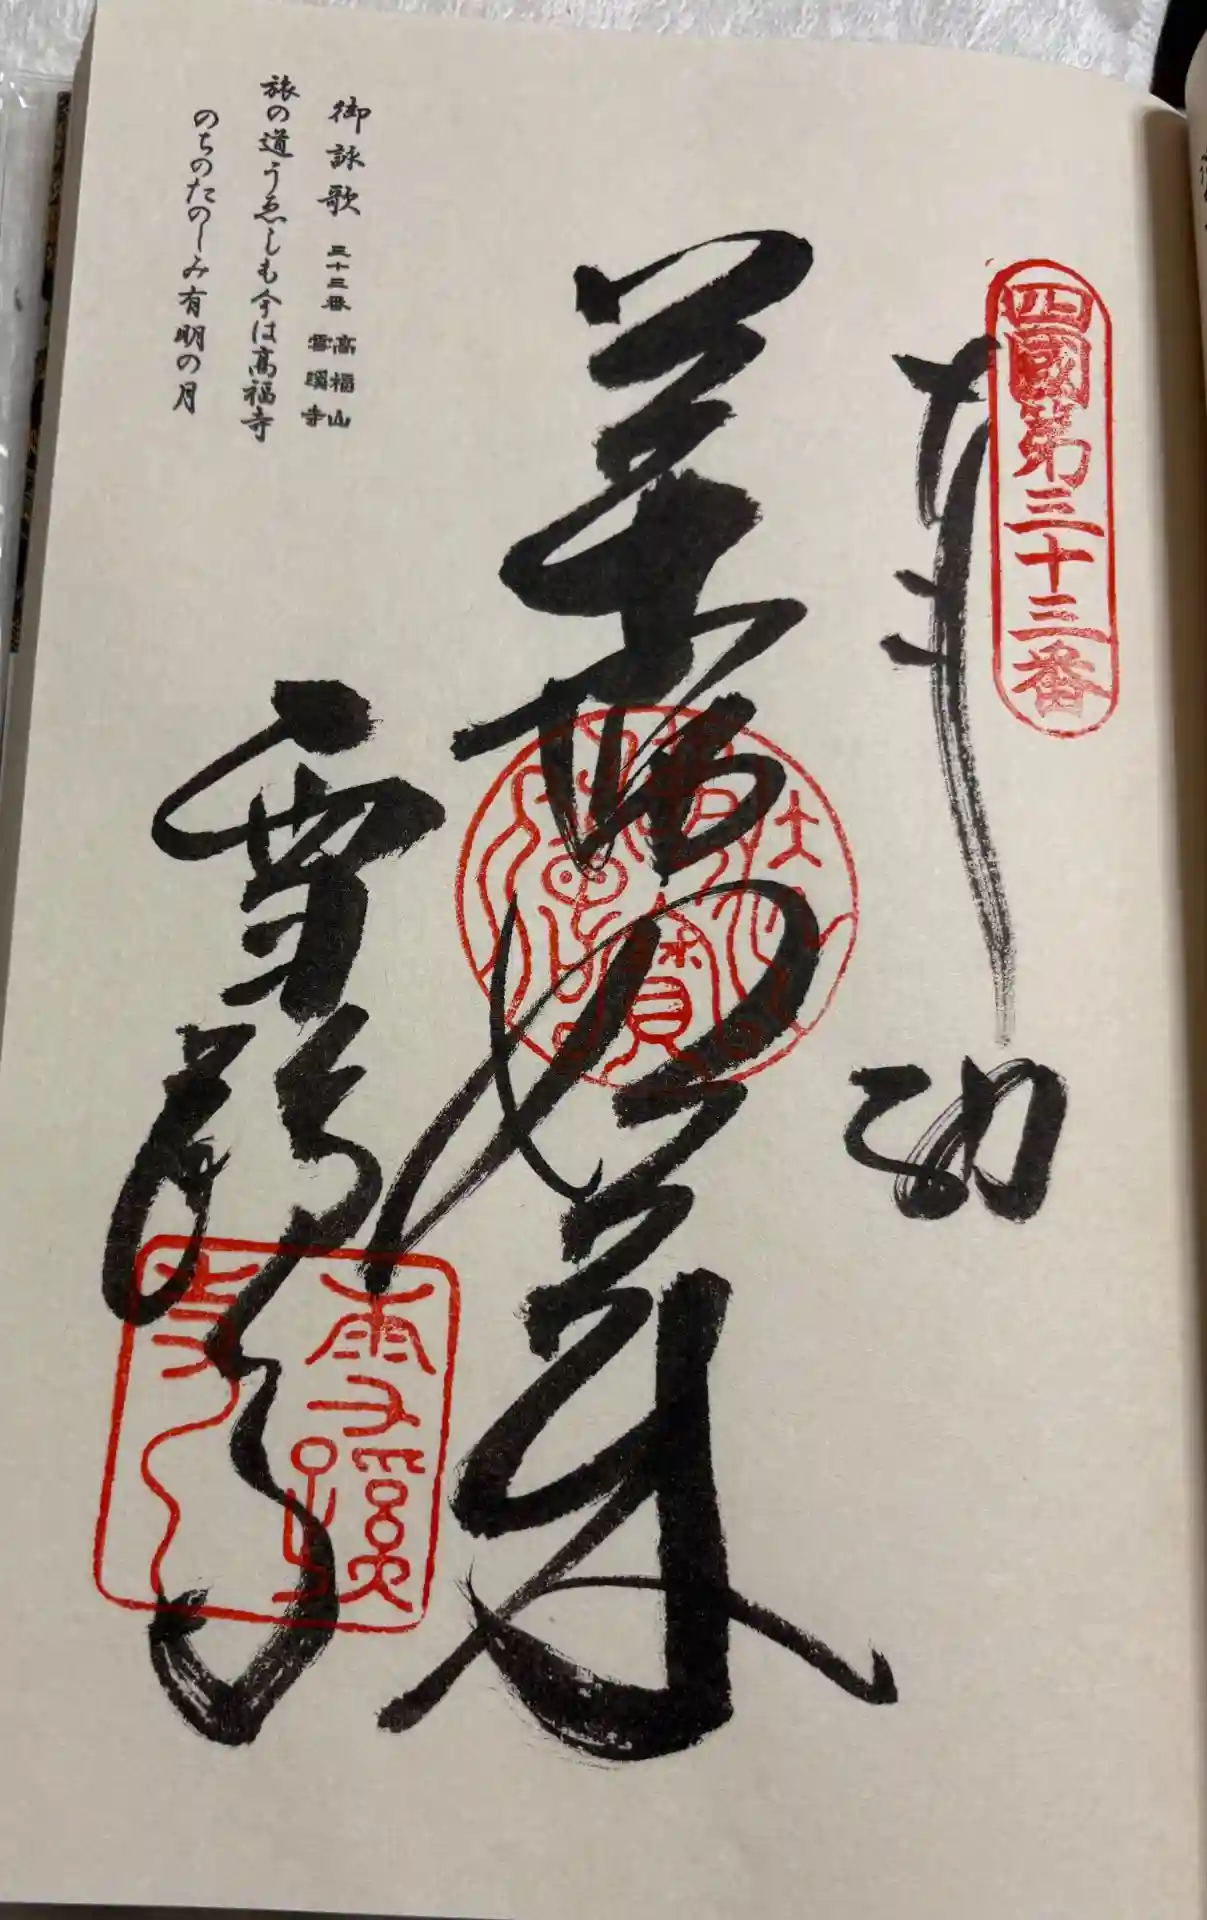 四國第三十三番
奉納
薬師如来
雪蹊寺
雪蹊寺
御詠歌
三十三番 高福山
雪蹊寺
旅の道うゑしも今は高福寺
のちのたのしみ有明の月